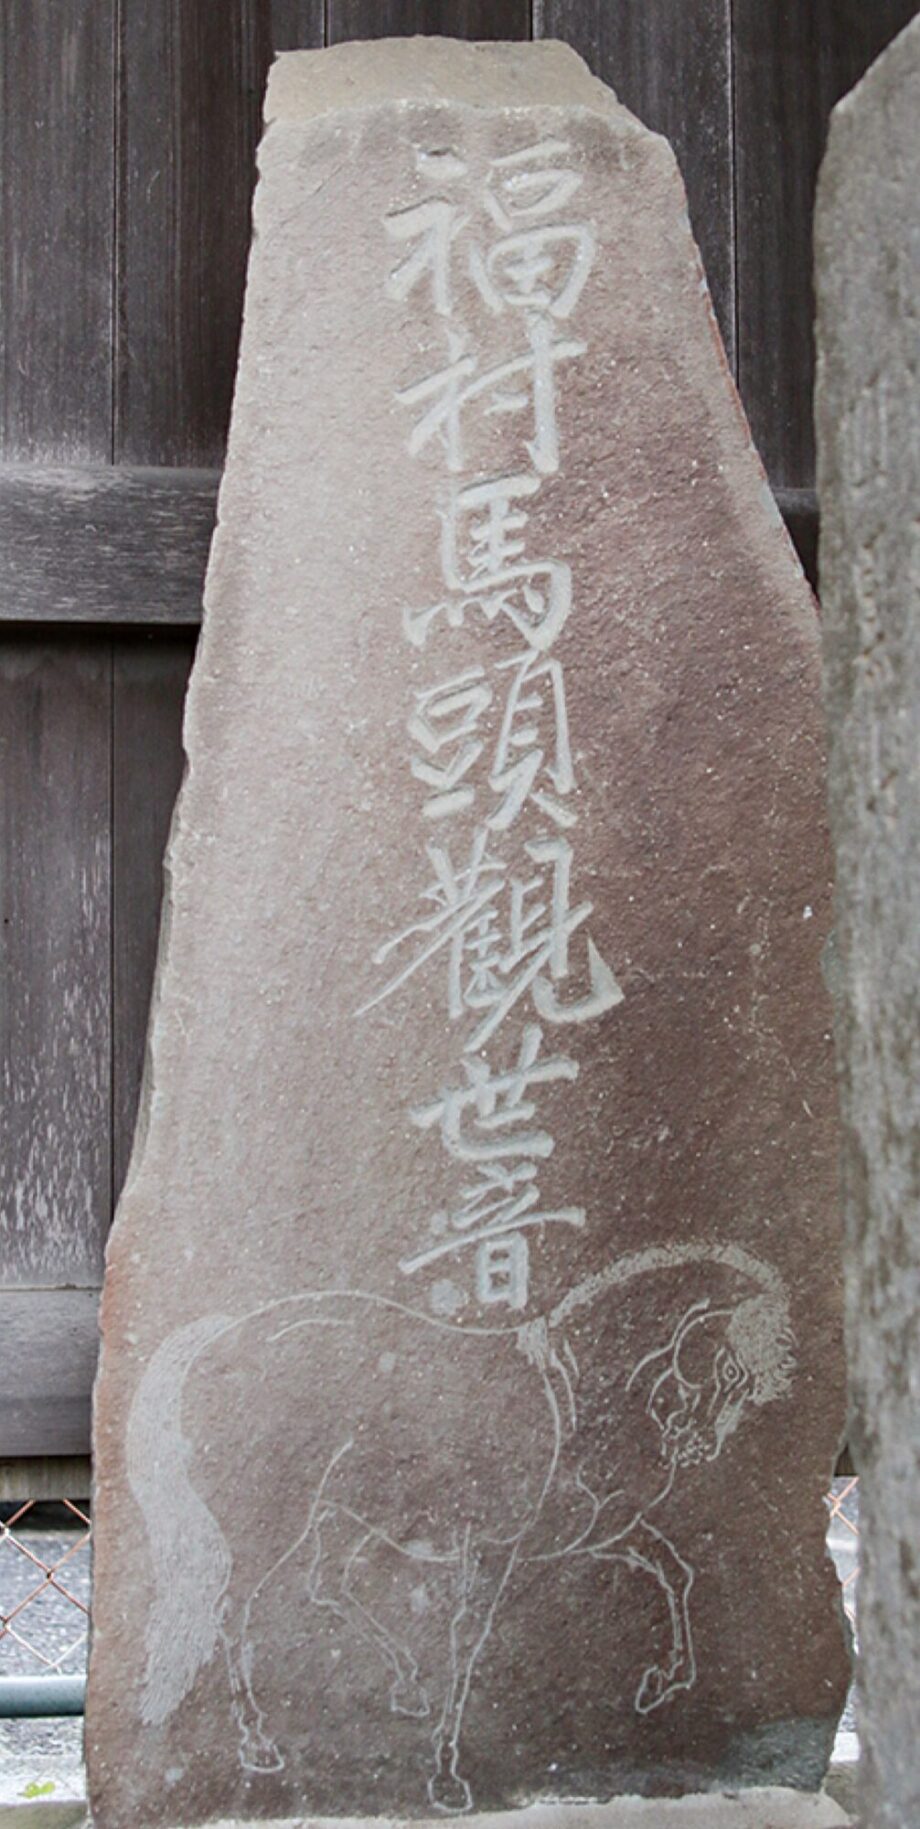 福村馬頭觀世音